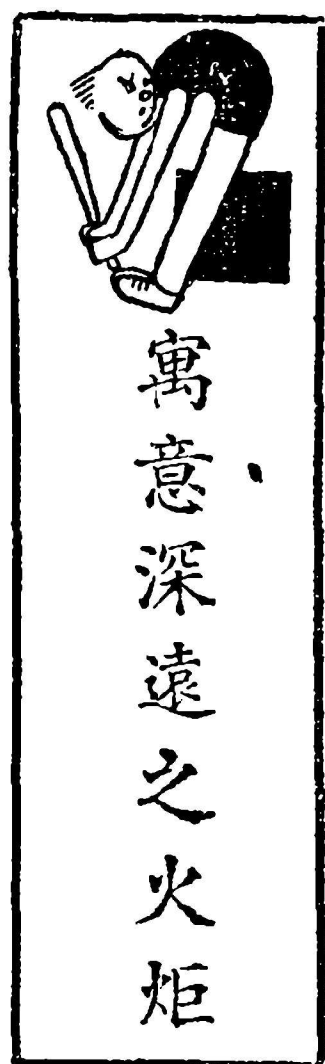 寓意深遠之火炬